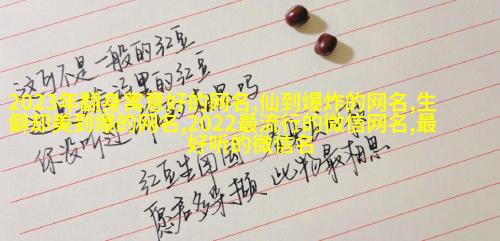 这可不是一般的红豆
这里的红豆
2023年翻身寓意好的网名,仙到爆炸的网名,生
僻却美到爆的网名,2022最流行的微信网名,最
好听的微信名
你没听过
吗
红豆生南国
愿君多采撷 此物最相思